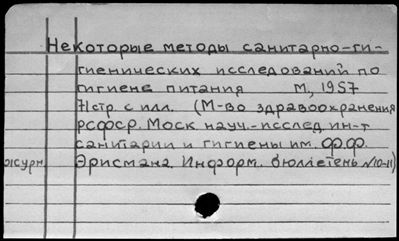 Некоторые методы санитарно-ги-
гиенических исследований по
гигиене питания М, 1957
71стр. с илл. (М-во здравоохранения
РСФСР. Моск науч.-исслед ин-т
санитарии и гигиены им. Ф.Ф.
журн. Эрисмана. Информ. бюллетень №10-11)